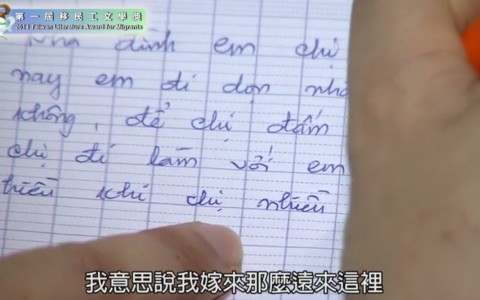 第一届移民工文學獎
Taiwan Literature Award for Migrants
đình em chị
nay em đi dọn nhà
không, để chị đấm
chị đi làm với em
khi chị nhiều
我意思說我嫁來那麼遠來這裡